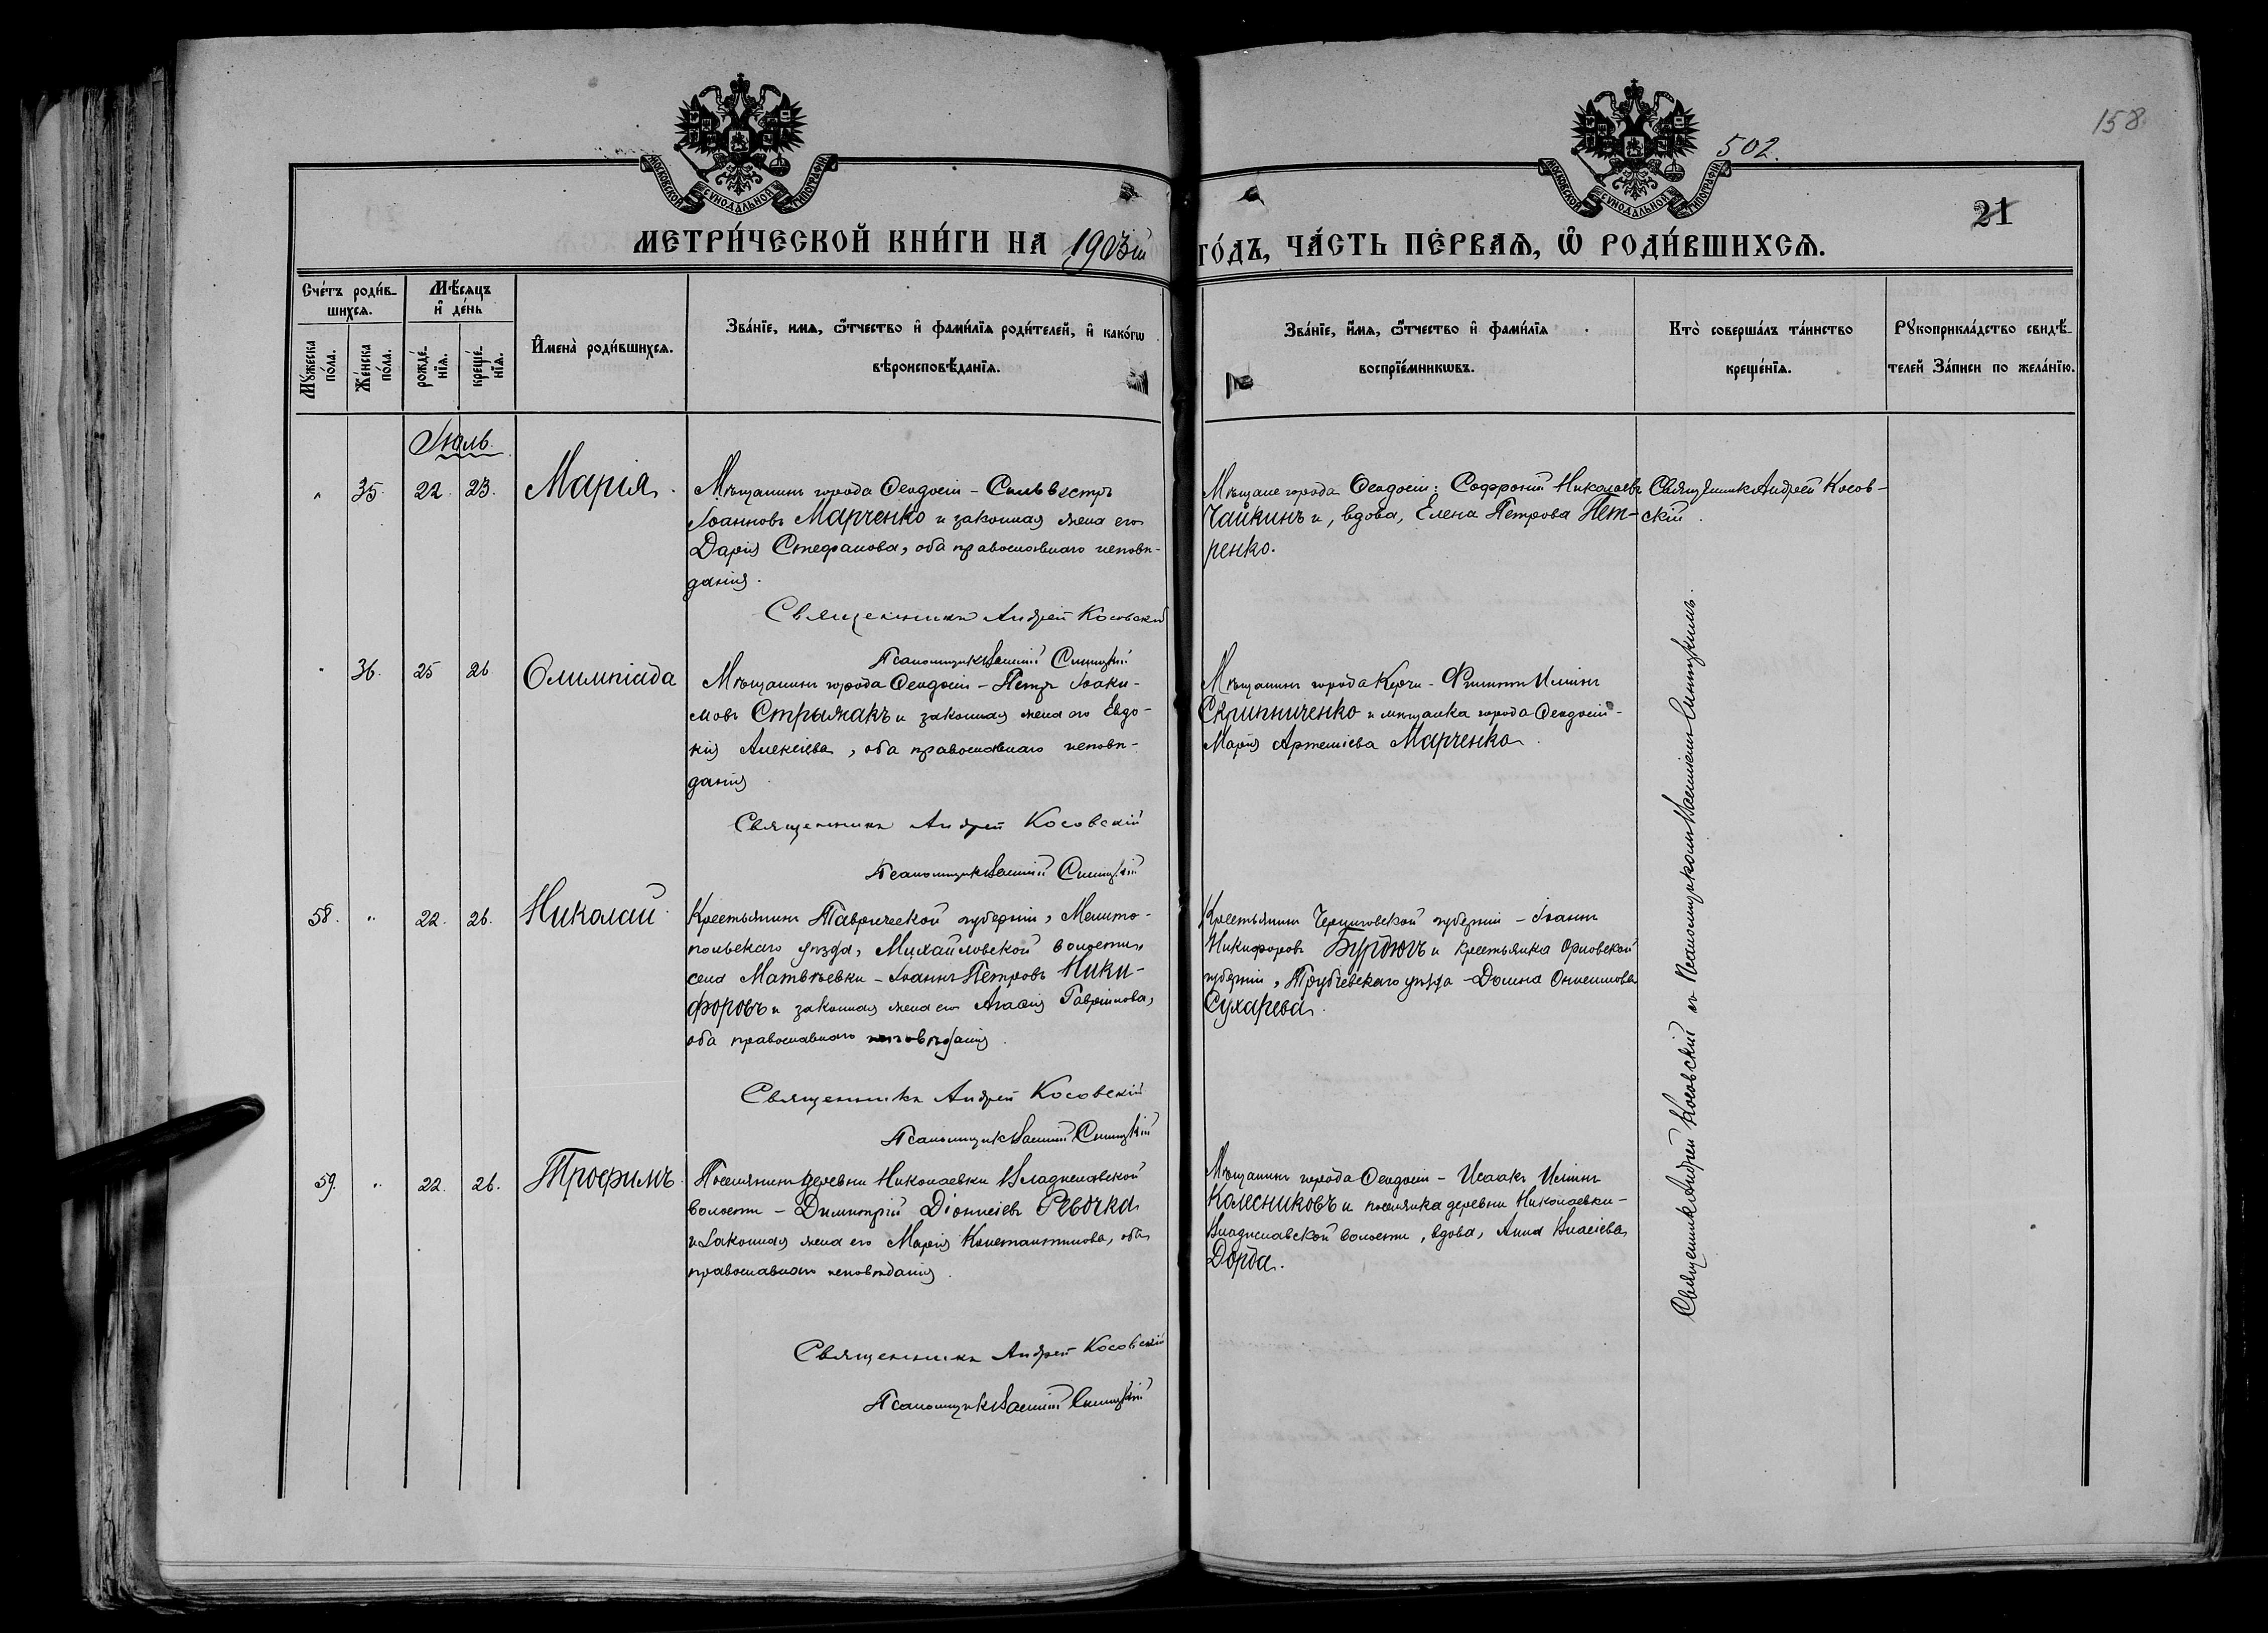 158
502.
МОСКОВСКОЙ СѴНОДАЛЬНОЙ ТИПОГРАФІИ
МОСКОВСКОЙ СѴНОДАЛЬНОЙ ТИПОГРАФІИ
21
МЕТРИ́ЧЕСКОЙ КНИ́ГИ НА 1903ій ГО́ДЪ, ЧА́СТЬ ПЕ́РВАѦ, Ѡ҆ РОДИ́ВШИХСѦ.
Сче́тъ роди́в-
шихсѧ.
Мꙋ́жеска по́ла.
Же́нска по́ла.
Мѣ́сѧцъ
и҆ де́нь
рожде́-
нїѧ.
креще́-
нїѧ.
И҆мена̀ роди́вшихсѧ.
Зва́нїе, имѧ, ѻ҆́тчество и҆ фами́лїѧ роди́телей, и҆ како́гѡ
вѣроисповѣ́данїѧ.
Зва́нїе, и҆́мѧ, ѻ҆́тчество и҆ фами́лїѧ
воспрїе́мникѡвъ.
Кто̀ соверша́лъ та́инство
креще́нїѧ.
Рꙋкоприкла́дство свидѣ́-
телей За́писи по жела́нїю.
Іюль.
" 35. 22. 23. Марія.
Мѣщанинъ города Ѳеодосіи - Сильвестръ
Іоанновъ Марченко и законная жена его
Дарія Стефанова, оба православнаго исповѣ-
данія.
Священникъ Андрей Косовскій
Псаломщикъ Василій Синицкій
Мѣщане города Ѳеодосіи: Софроній Николаевъ
Чайкинъ и, вдова, Елена Петрова Пет-
ренко.
Священникъ Андрей Косов-
скій
" 36. 25 26 Олимпіада
Мѣщанинъ города Ѳеодосіи - Петръ Іоаки-
мовъ Стрыжакъ и законная жена его Евдо-
кія Алексіева, оба православнаго исповѣ-
данія
Священникъ Андрей Косовскій
Псаломщикъ Василій Синицкій
Мѣщанинъ города Керчи - Филиппъ Иліинъ
Скрипниченко и мѣщанка города Ѳеодосіи -
Марія Артеміева Марченко.
58. " 22. 26. Николай
Крестьянинъ Таврической губерніи, Мелито-
польскаго уѣзда, Михайловской волости,
села Матвѣевки - Іоаннъ Петровъ Ники-
форовъ и законная жена его Агаѳія Гавріилова,
оба православнаго исповѣданія.
Священникъ Андрей Косовскій
Псаломщикъ Василій Синицкій
Крестьянинъ Черниговской губерніи - Іоаннъ
Никифоровъ Бурдюгъ и крестьянка Орловской
губерніи, Трубчевскаго уѣзда - Домна Онисимова
Сухарева.
59. " 22. 26. Трофимъ
Поселянинъ деревни Николаевки Владиславской
волости - Димитрій Діонисіевъ Ревочка
и законная жена его Марія Константинова, оба
православнаго исповѣданія.
Священникъ Андрей Косовскій
Псаломщикъ Василій Синицкій
Мѣщанинъ города Ѳеодосіи - Исаакъ Иліинъ
Колесниковъ и поселянка деревни Николаевки -
Владиславской волости, вдова, Анна Власіева
Дорда.
Священникъ Андрей Косовскій съ Псаломщикомъ Василіемъ Синицкимъ.